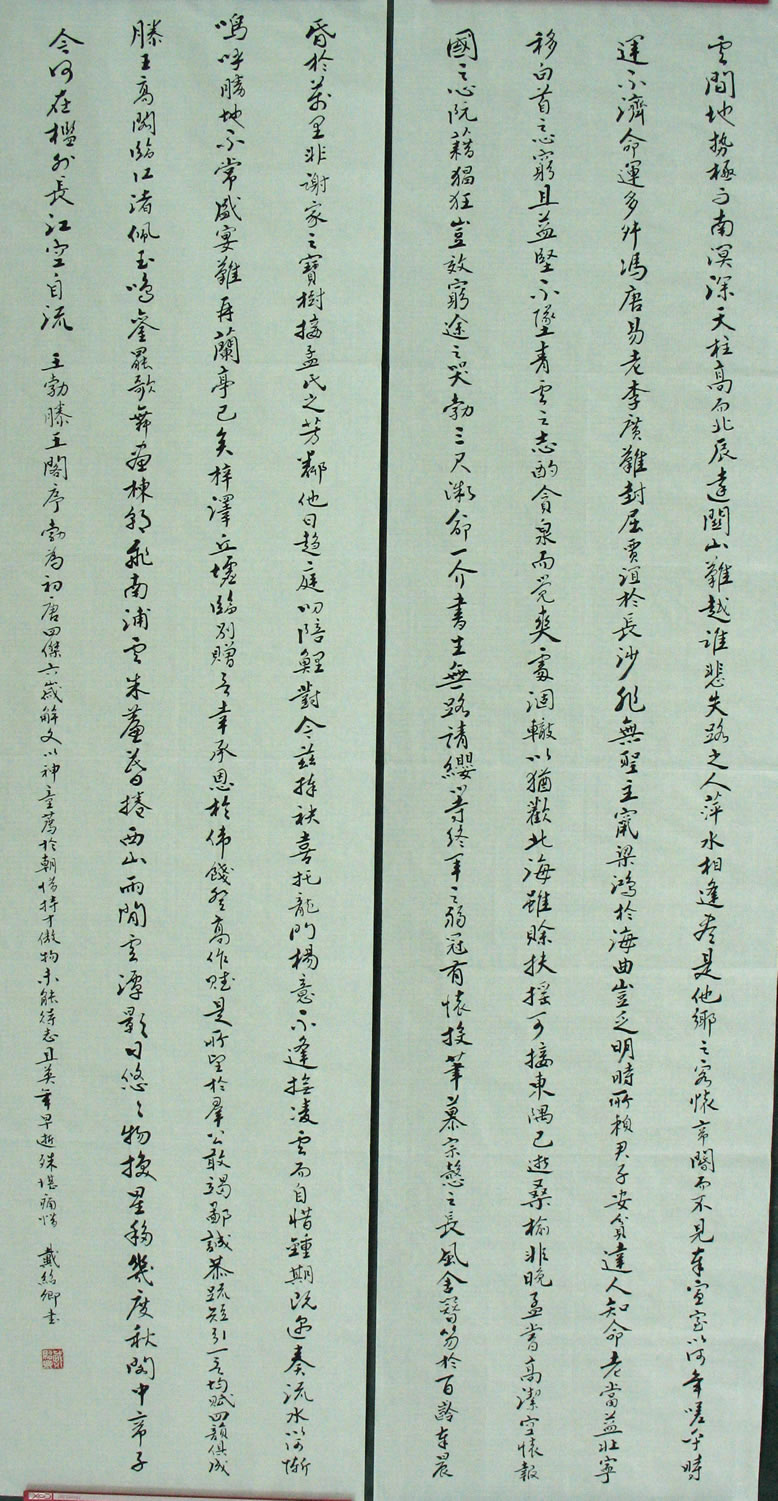 雲間地勢極而南溟深天柱高而北辰遠關山難越誰悲失路之人萍水相逢盡是他鄉之客懷帝閽而不見奉宣室以何年嗟乎時
運不濟命運多舛馮唐易老李廣難封屈賈誼於長沙非無聖主竄梁鴻於海曲豈乏明時所賴君子安貧達人知命老當益壯寧
移白首之志窮且益堅不墜青雲之志酌貪泉而覺爽處涸轍以猶歡北海雖賒扶搖可接東隅已逝桑榆非晚孟嘗高潔空懷報
國之心阮藉猖狂豈效窮途之哭勃三尺微命一介書生無路請纓等終軍之弱冠有懷投筆慕宗慤之長風舍簪笏於百齡奉晨
昏於萬里非謝家之寶樹接孟氏之芳鄰他日趨庭叨陪鯉對今茲捧袂喜托龍門楊意不逢撫凌雲而自惜鍾期既遇奏流水以何慚
嗚呼勝地不常盛宴難再蘭亭已矣梓澤丘墟臨別贈言幸承恩於偉餞登高作賦是所望於羣公敢竭鄙誠恭疏短引一言均賦四韻俱成
滕王高閣臨江渚佩玉鳴鑾罷歌舞畫棟朝飛南浦雲朱簾暮捲西山雨閒雲潭影日悠悠物換星移幾度秋閣中帝子
今何在檻外長江空自流 王勃滕王閣序 勃為初唐四傑六歲解文以神童薦於朝惜持才傲物未能得志且英年早逝殊堪痛惜 戴 卿書